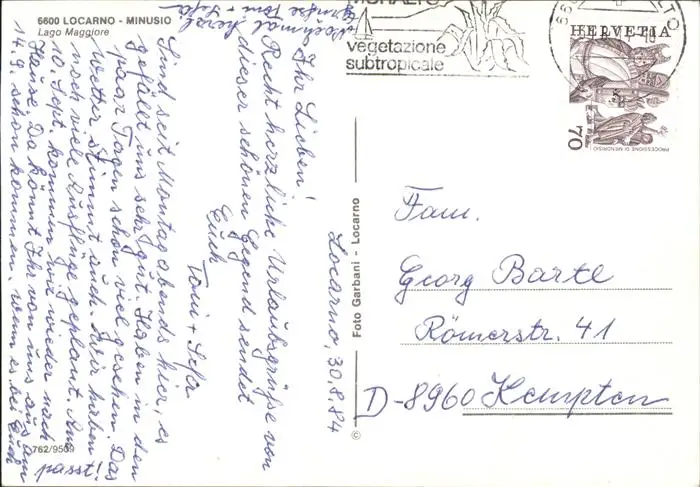 6600 LOCARNO - MINUSIO
Lago Maggiore
MURALTO
vegetazione
subtropicale
HELVETIA
70
PROCESSIONE DI MENDRISIO
Locarno, 30.8.84
Ihr Lieben!
Recht herzliche Urlaubsgrüße von
dieser schönen Gegend sendet
Euch
Toni + Sefa
Sind seit Montag abends hier, es
gefällt uns sehr gut. Haben in den
paar Tagen schon viel gesehen. Das
Wetter stimmt auch. Wir haben
noch viele Ausflüge geplant. Am
10. Sept. kommen wir wieder nach
Hause. Da könnt Ihr von uns aus am
14.9. schon kommen, wenn es bei Euch
passt!
Nochmal herzl.
Grüsse Toni + Sefa
Fam.
Georg Barte
Römerstr. 41
D-8960 Kempten
Foto Garbani - Locarno
©
762/9509